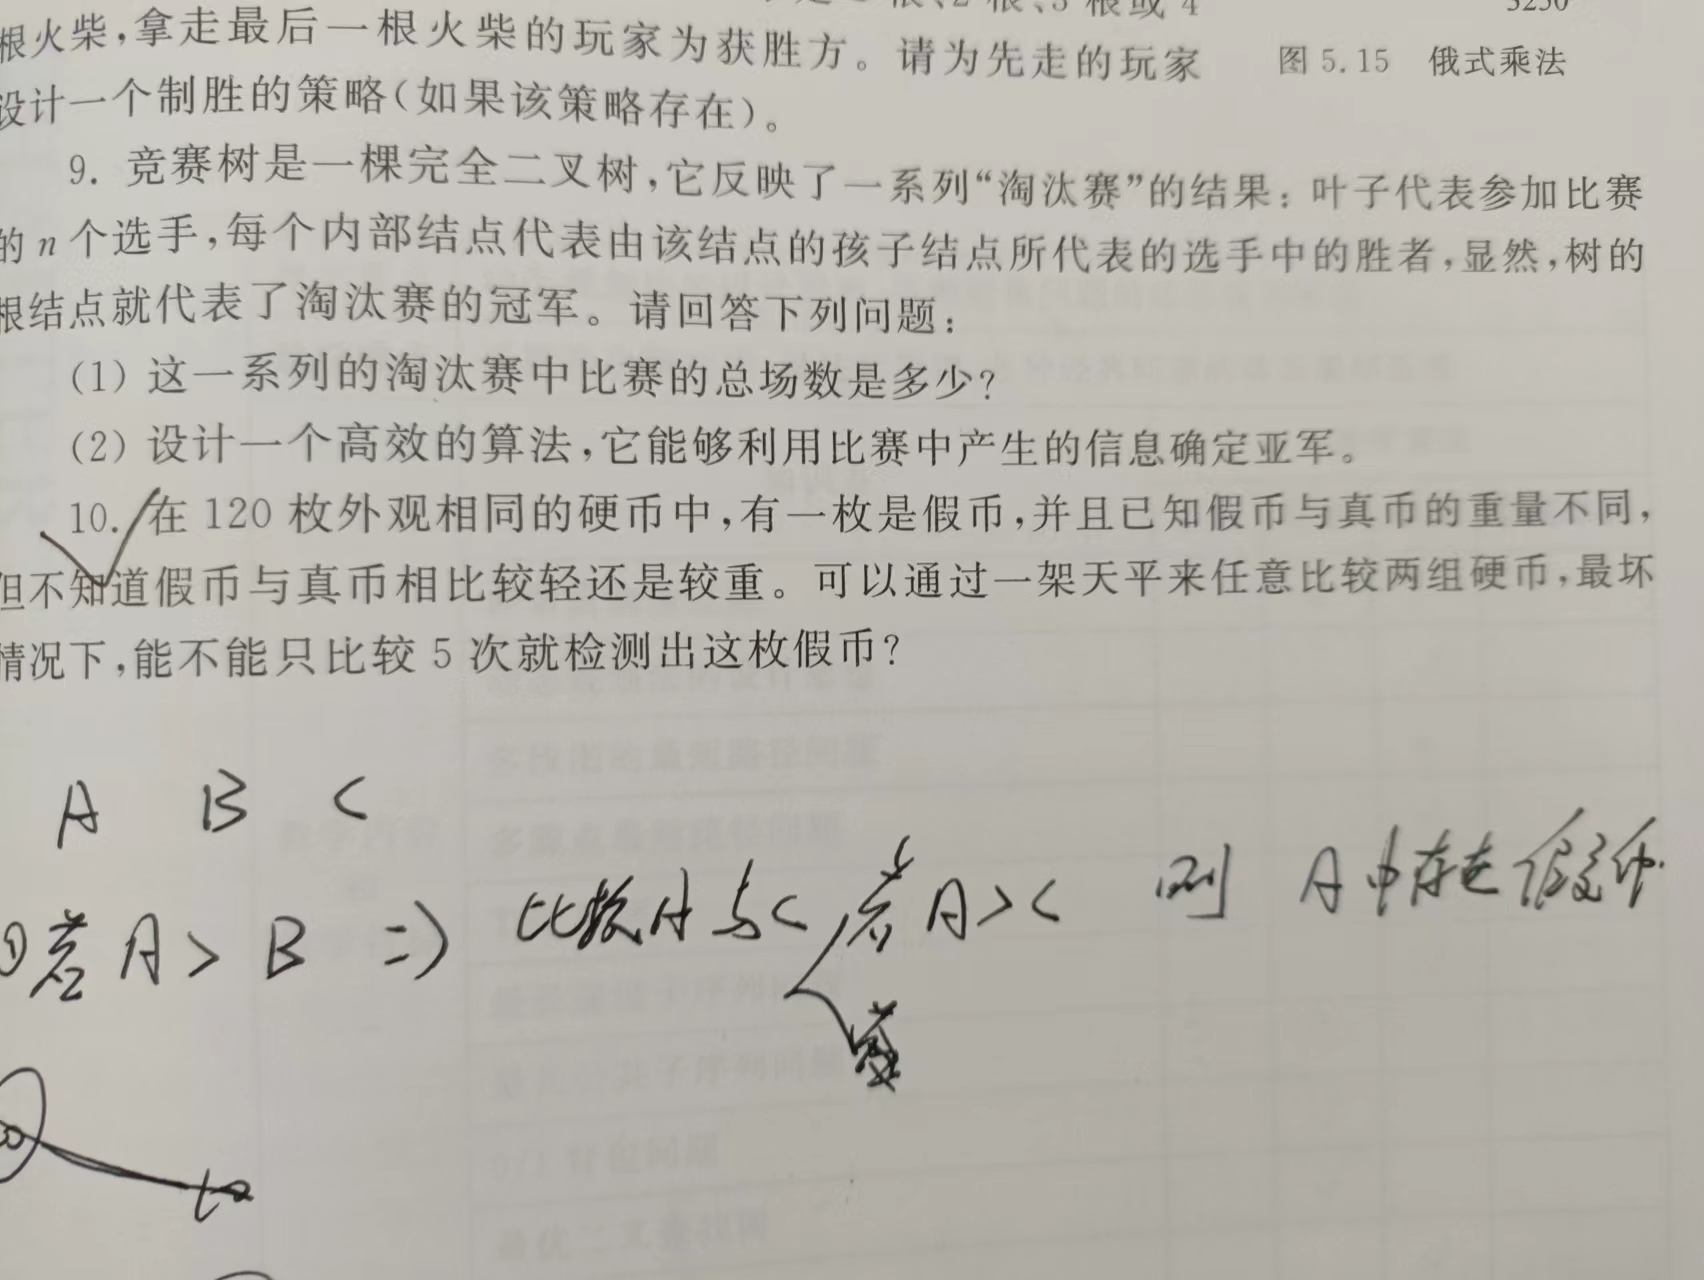 根、2根、3根或4
根火柴，拿走最后一根火柴的玩家为获胜方。请为先走的玩家
图5.15 俄式乘法
设计一个制胜的策略(如果该策略存在)。
9. 竞赛树是一棵完全二叉树，它反映了一系列“淘汰赛”的结果：叶子代表参加比赛
的n个选手，每个内部结点代表由该结点的孩子结点所代表的选手中的胜者，显然，树的
根结点就代表了淘汰赛的冠军。请回答下列问题：
(1) 这一系列的淘汰赛中比赛的总场数是多少？
(2) 设计一个高效的算法，它能够利用比赛中产生的信息确定亚军。
10. 在120枚外观相同的硬币中，有一枚是假币，并且已知假币与真币的重量不同，
但不知道假币与真币相比较轻还是较重。可以通过一架天平来任意比较两组硬币，最坏
情况下，能不能只比较5次就检测出这枚假币？
A B C
①若 A > B => 比较A与C 若A>C 则 A中存在假币